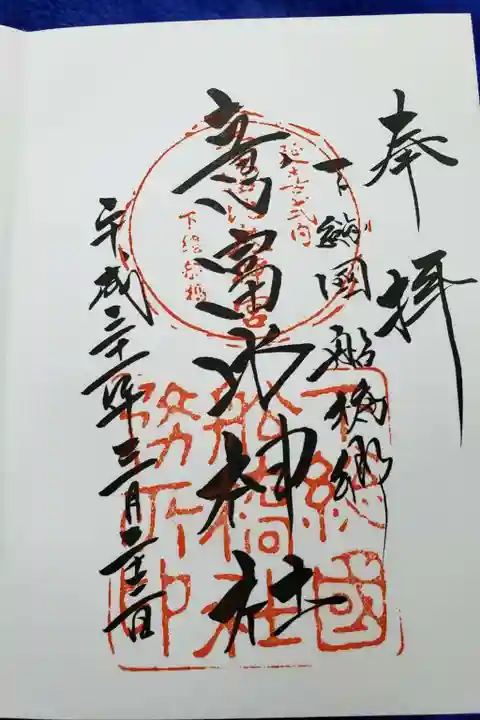 奉拝
下総国船橋郷
意富比神社
平成三十一年三月二十二日
延喜式内
下総船橋
下總國
船橋
務所印